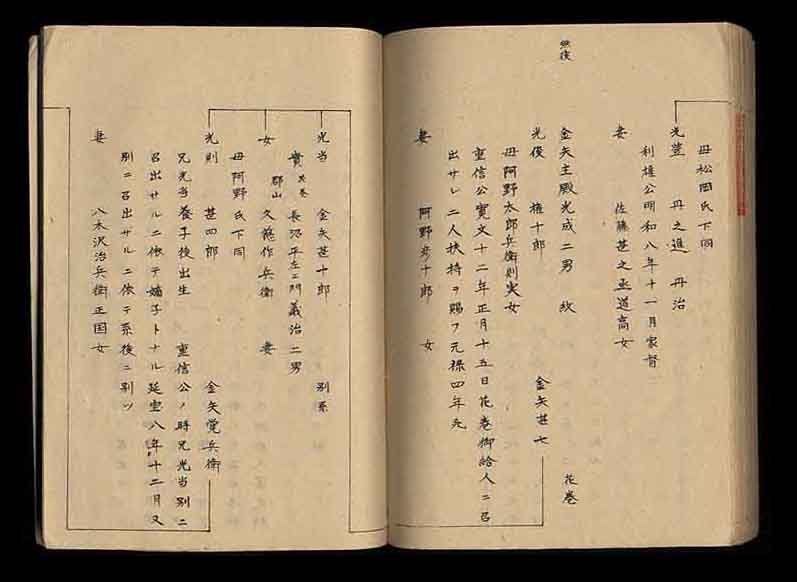 母松岡氏下同
光豊 丹之進 丹治
利雄公明和八年十一月家督
妻 佐藤甚之丞道高女
花巻
金矢主殿光成二男 紋
光俊 権十郎 金矢甚七
母阿野太郎兵衛則実女
重信公寛文十二年正月十五日花巻御給人ニ召
出サレ二人扶持ヲ賜フ元禄四年死
妻 阿野彦十郎 女
光当 金矢甚十郎 別系
実花巻 長沼平左エ門義治二男
女 郡山 久慈作兵衛 妻
母阿野氏下同
光則 甚四郎 金矢覚兵衛
兄光当養子後出生 重信公ノ時兄光当別ニ
召出サルニ依テ嫡子トナル延宝八年十二月又
別ニ召出サルニ依テ系後ニ別ツ
妻 八木沢治兵衛正国女